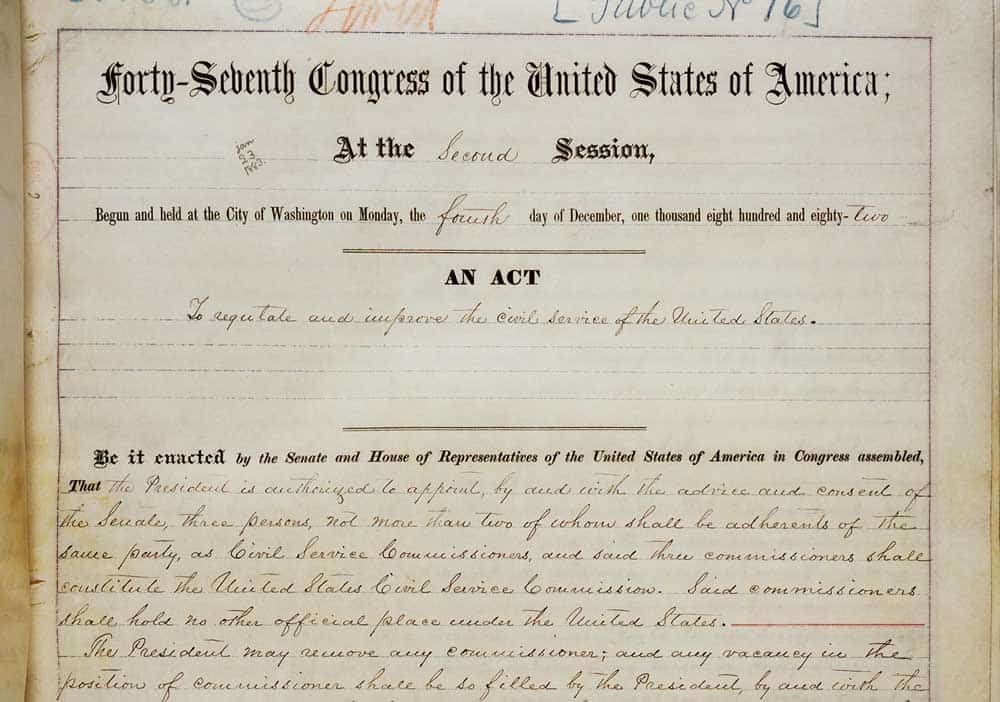 [Public No 16]
Forty-Seventh Congress of the United States of America;
At the Second Session,
Jan
Begun and held at the City of Washington on Monday, the fourth day of December, one thousand eight hundred and eighty-two
AN ACT
To regulate and improve the civil service of the United States.
Be it enacted by the Senate and House of Representatives of the United States of America in Congress assembled,
That the President is authorized to appoint, by and with the advice and consent of
the Senate, three persons, not more than two of whom shall be adherents of the
same party, as Civil Service Commissioners, and said three commissioners shall
constitute the United States Civil Service Commission. Said commissioners
shall hold no other official place under the United States.
The President may remove any commissioner; and any vacancy in the
position of commissioner shall be so filled by the President, by and with the